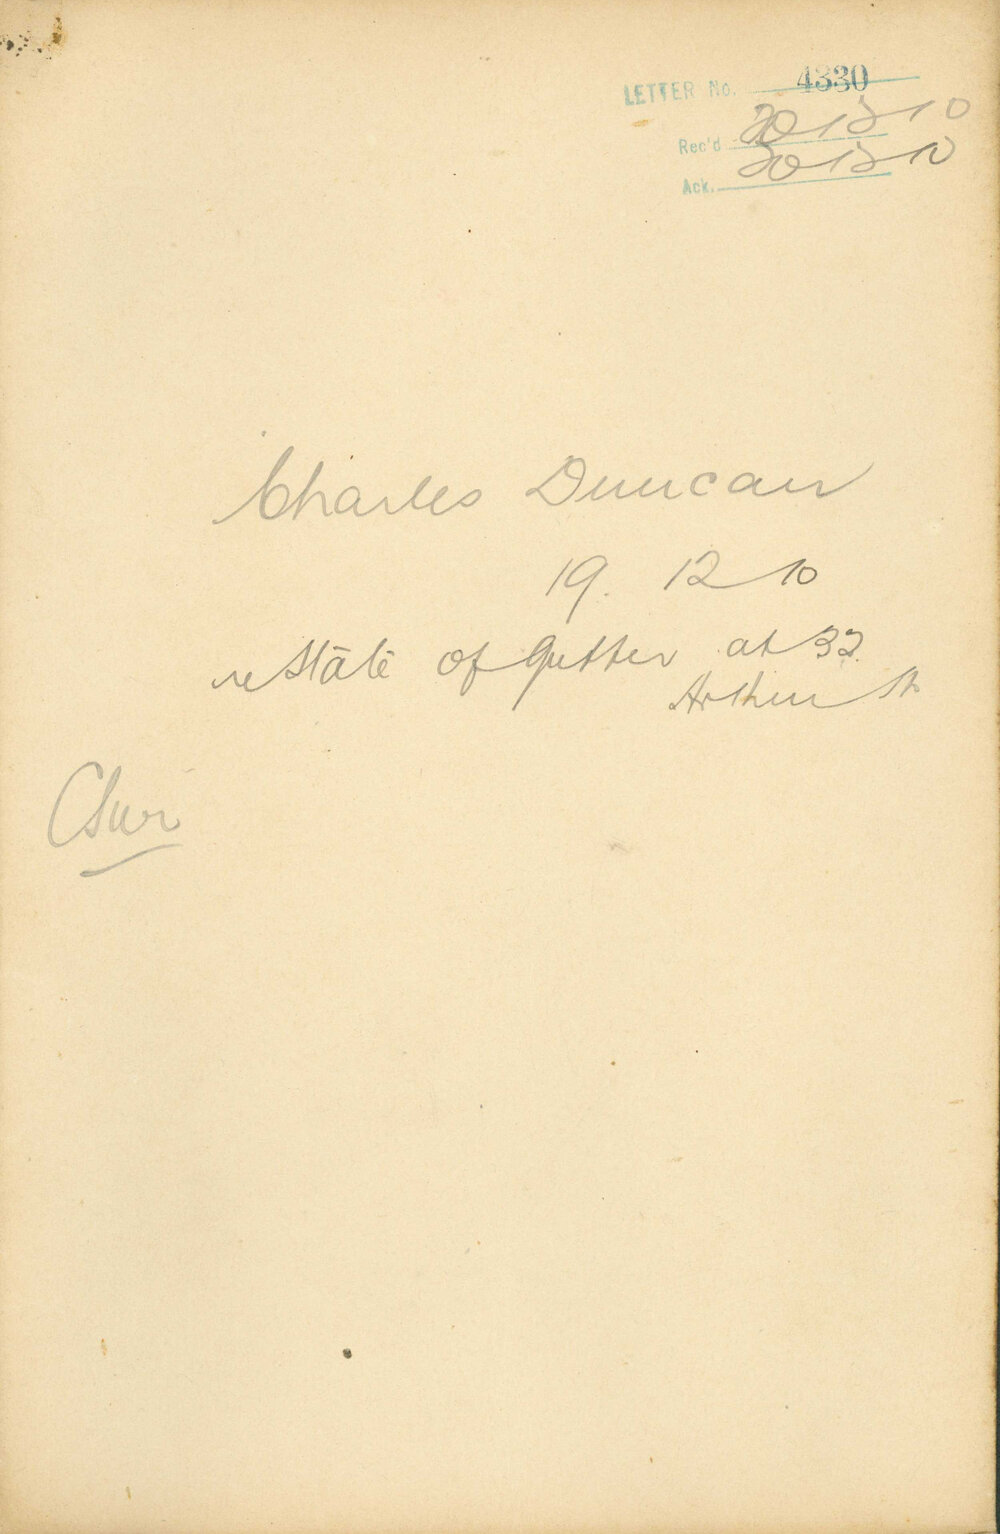 LETTER No. 4330
Rec'd 20 12 10
Ack. 20 12 10
Charles Duncan
19. 12 10
re state of gutter at 32
Arthur St